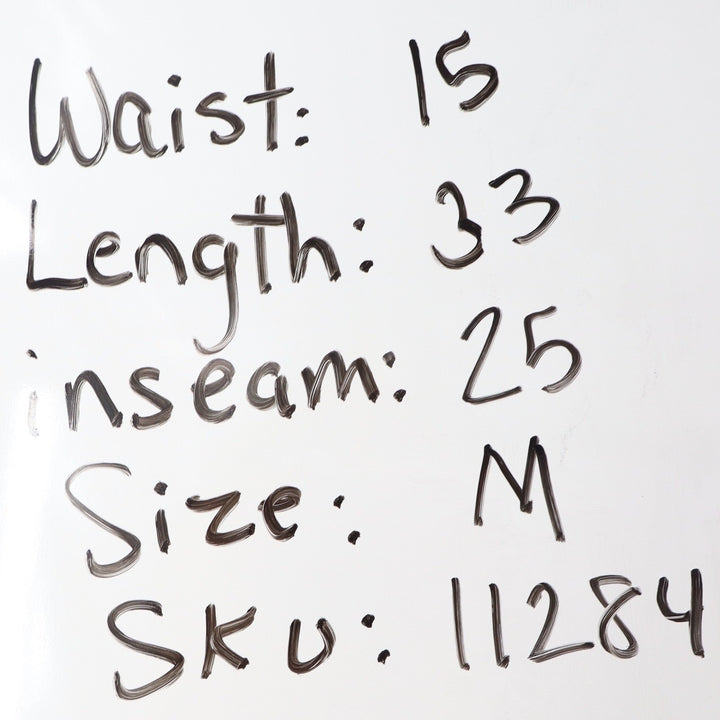 Waist: 15
Length: 33
inseam: 25
Size: M
Sku: 11284